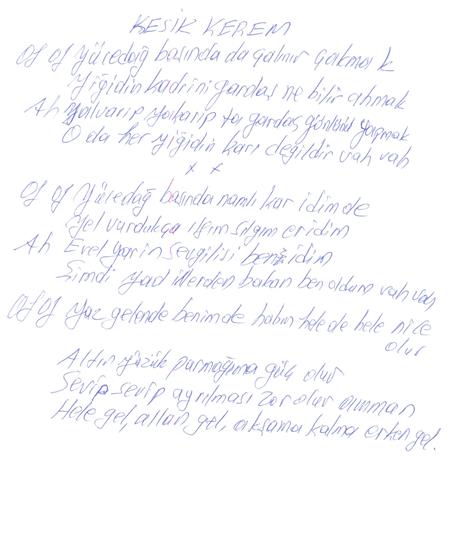 KESİK KEREM
Of Of Yücedağ başında da çalınır çakmak
Yiğidin kadrini gardaş ne bilir ahmak
Ah Yalvarıp yalvarıp gardaş gönlünü yapmak
O da her yiğidin karı değildir vah vah
x x
Of Of Yücedağ başında namlı kar idim de
Yel vurdukça ılgım sılgım eridim
Ah Evel yarin sevgilisi ben idim
Şimdi yad illerden bakan ben oldum vah vah
Of Of Yaz gelende benim de halım hele de hele nice
olur
Altın yüzük parmağıma güç olur
Sevip sevip ayrılması zor olur aman
Hele gel, allan gel, akşama kalma erken gel.